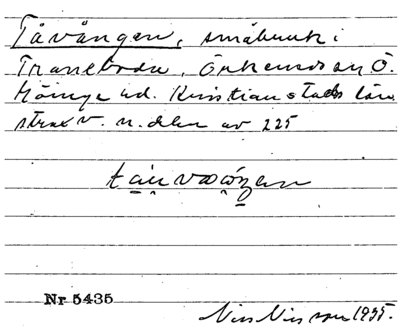 Tåvången, småbruk i
Tranetorp, Örkeneds sn Ö.
Göinge hd. Kristianstads län
strax v. n. delen av 225
Nr 5435
Nils Nilsson 1935.